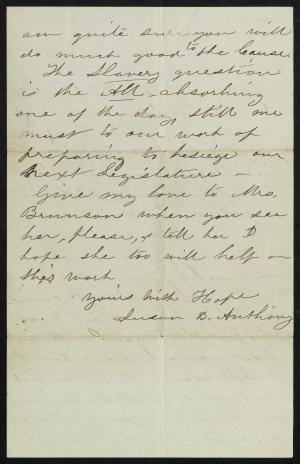 am quite sure you will
do much good to the Cause
The Slavery question
is the All-absorbing
one of the day, still we
must to our work of
preparing to besiege our
next Legislature —
Give my love to Mrs.
Brunson when you see
her, please, & tell her I
hope she too will help on
this work
Yours with Hope
Susan B. Anthony